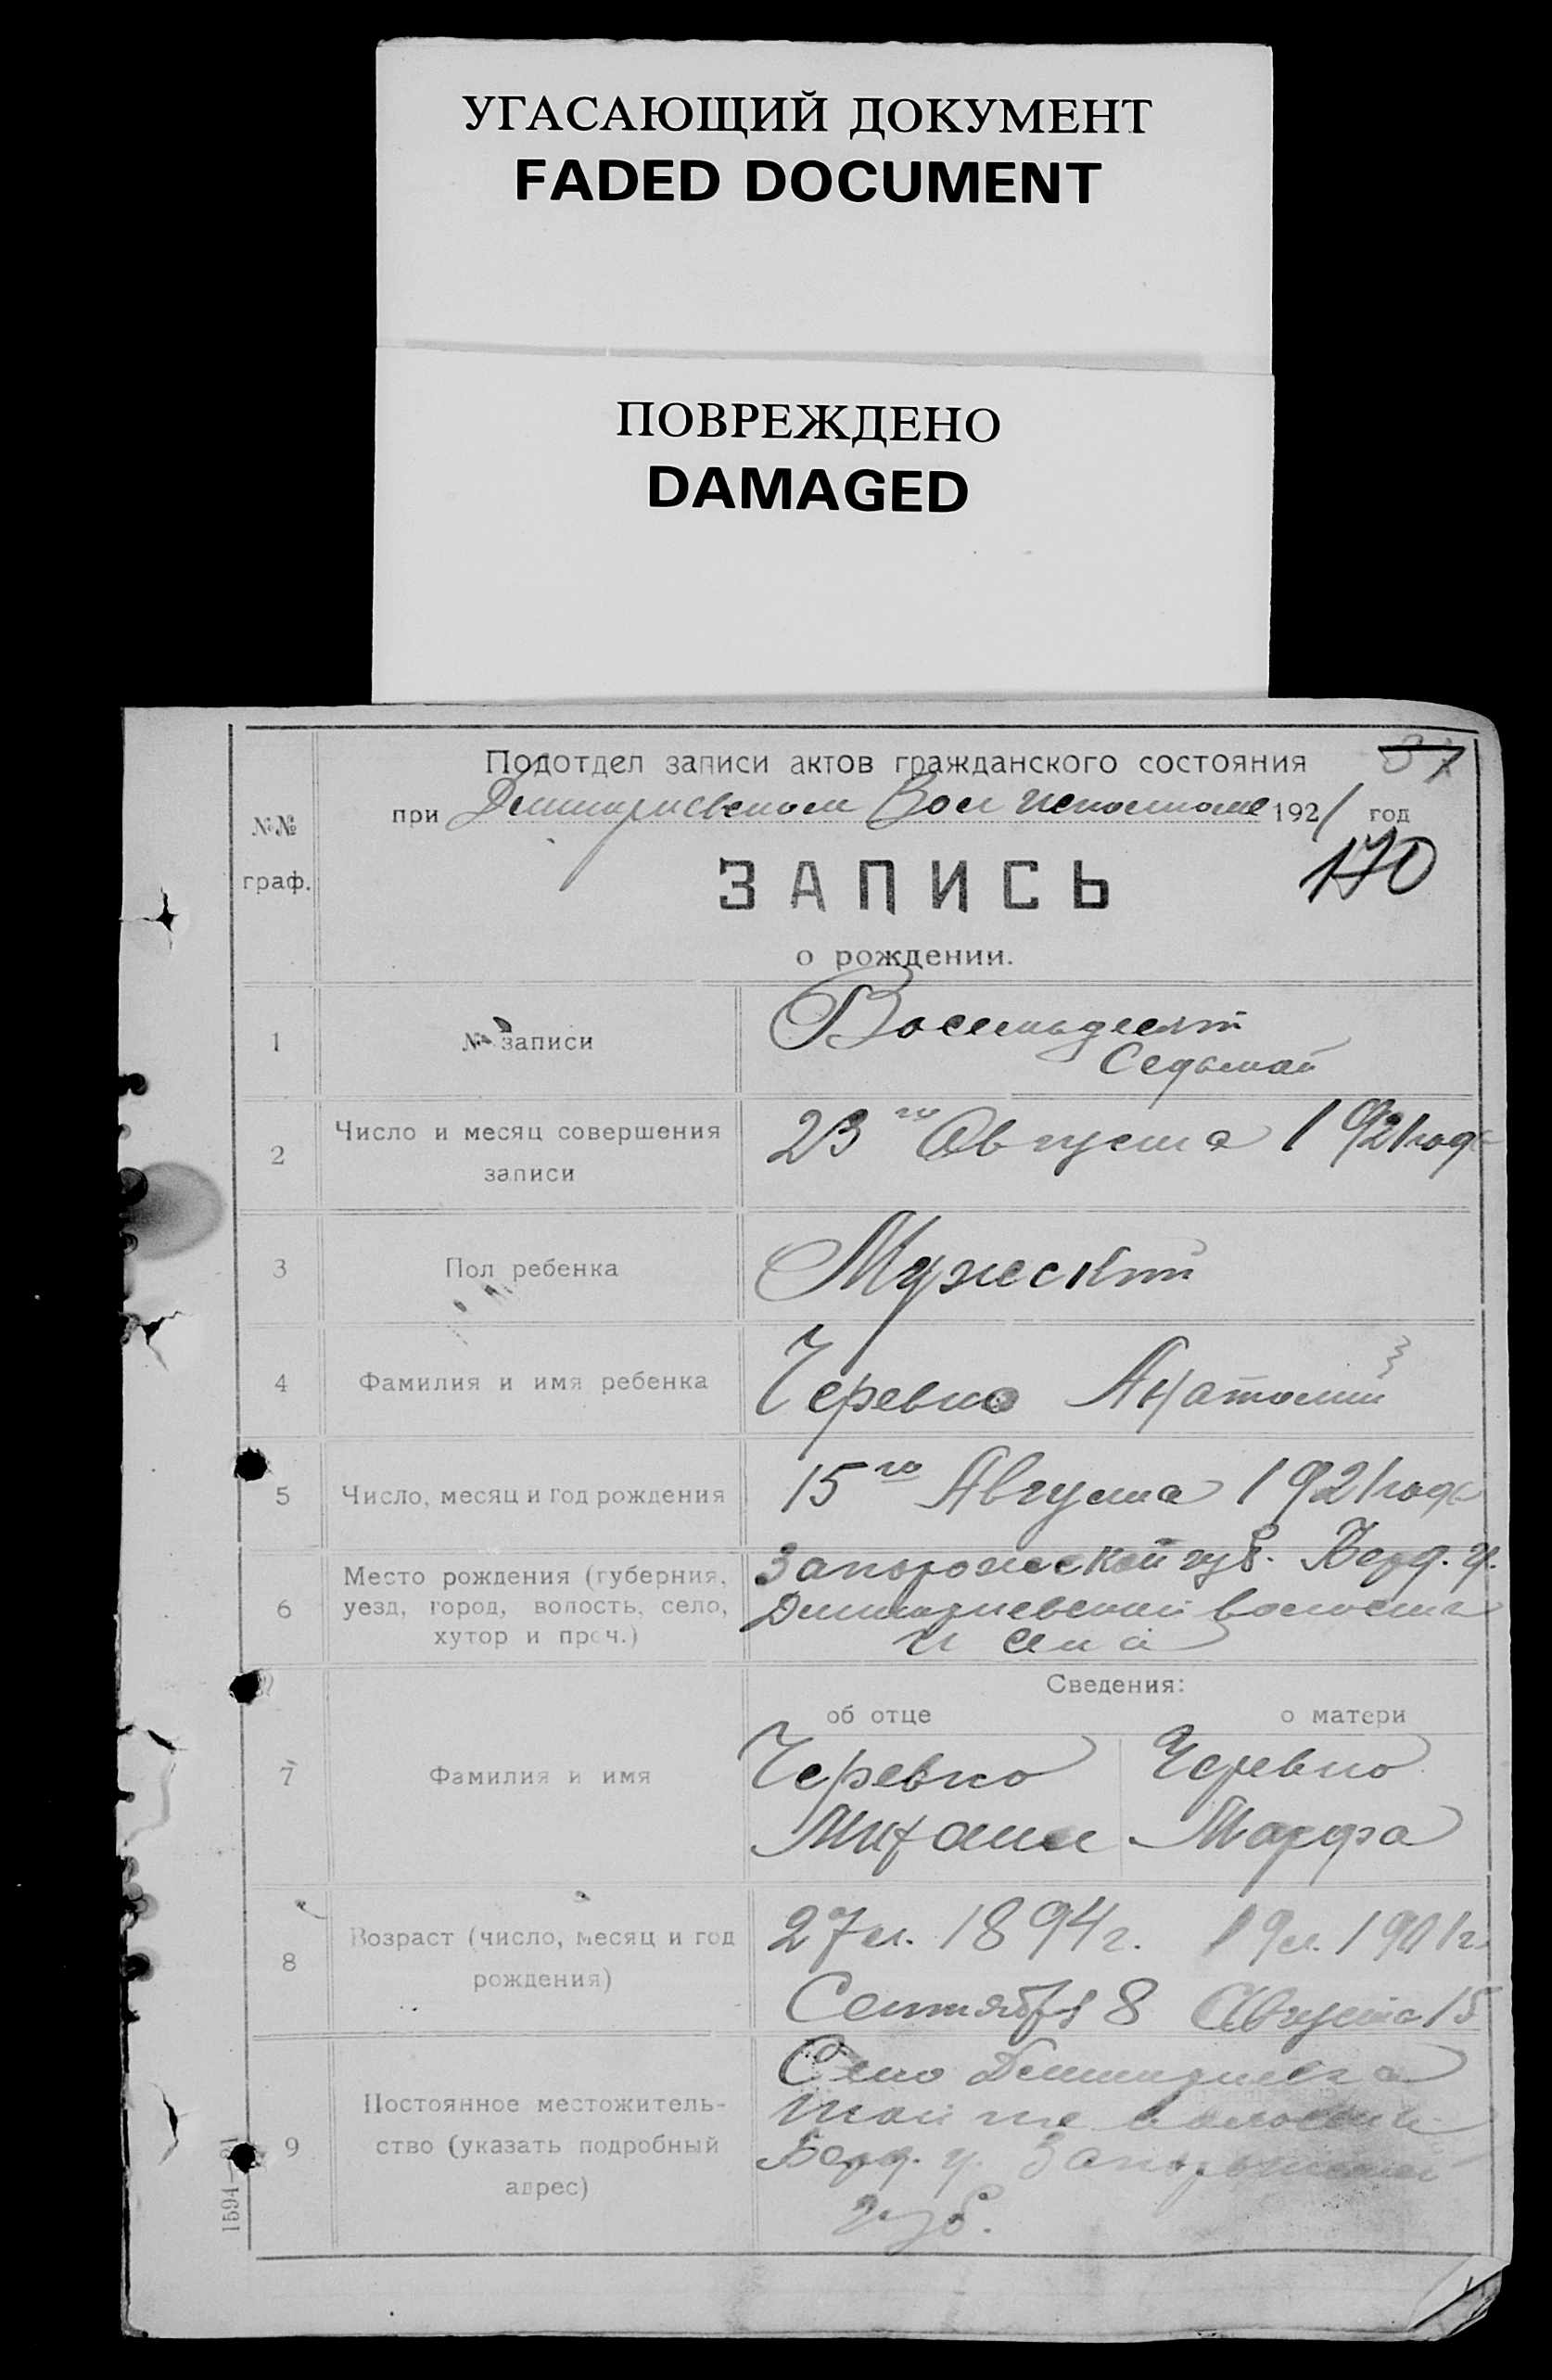 УГАСАЮЩИЙ ДОКУМЕНТ
FADED DOCUMENT
ПОВРЕЖДЕНО
DAMAGED
Подотдел записи актов гражданского состояния
при Вол 1921 год
№№ граф.
170
ЗАПИСЬ
о рождении.
1 № записи Восемьдесят
Седьмой
2 Число и месяц совершения записи 23го Августа 1921 года
3 Пол ребенка Мужской
4 Фамилия и имя ребенка Черевко Анатолий
5 Число, месяц и год рождения 15го Августа 1921 года
6 Место рождения (губерния, уезд, город, волость, село, хутор и проч.) Запорожской губ. Берд. у.
волости
и села
Сведения:
об отце о матери
7 Фамилия и имя Черевко Черевко
Михаил Марфа
8 Возраст (число, месяц и год рождения) 27 л. 1894 г. 19 л. 1901 г.
Сентября 8 Августа 15
9 Постоянное местожитель-
ство (указать подробный
адрес) Село
той же волости
Берд. у. Запорожской
губ.